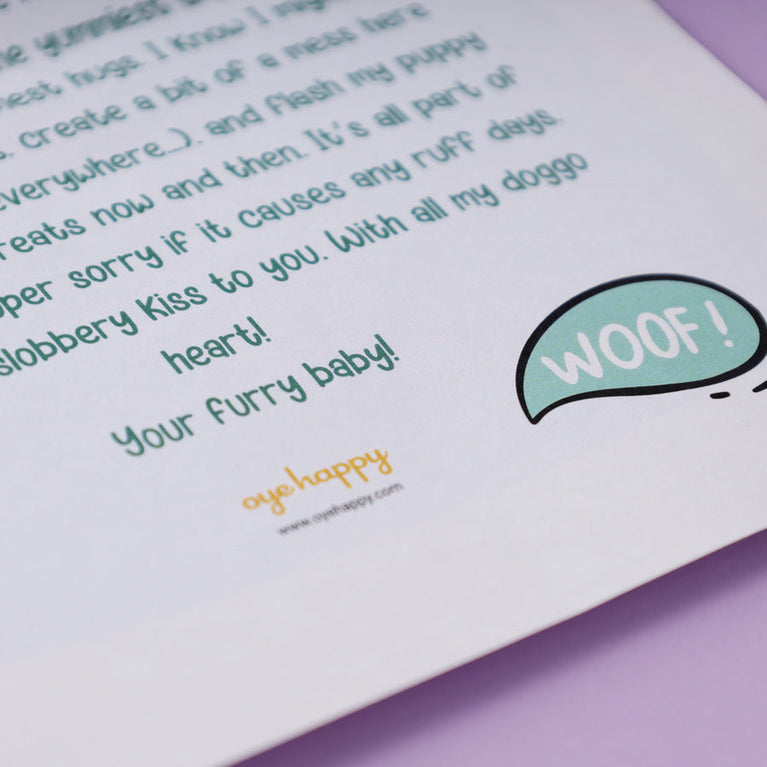 yummiest
hugs. I know I
create a bit of a mess here
everywhere...). and flash my puppy
now and then. It's all part of
sorry if it causes any ruff days.
slobbery kiss to you. With all my doggo
heart!
Your furry baby!
WOOF!
oyehappy
www.oyehappy.com